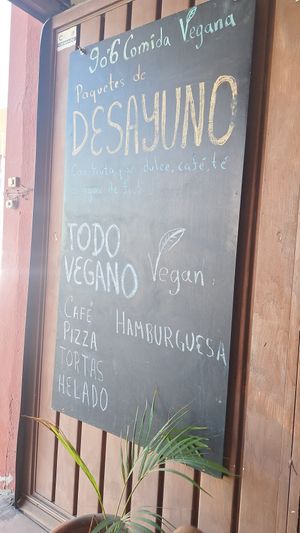 9o6 Comida Vegana
Paquetes de
DESAYUNO
Con fruta, pan dulce, café, té
TODO
VEGANO
Vegan
CAFÉ
PIZZA
TORTAS
HELADO
HAMBURGUESA